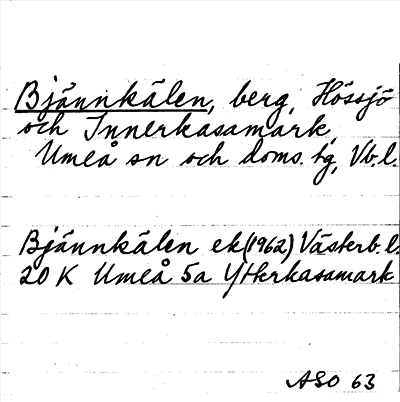 Bjännkälen, berg, Hössjö
och Innerkasamark,
Umeå sn och doms. tg, Vb.l.
Bjännkälen ek(1962) Västerb.l.
20 K Umeå 5a Ytterkasamark
ASO 63